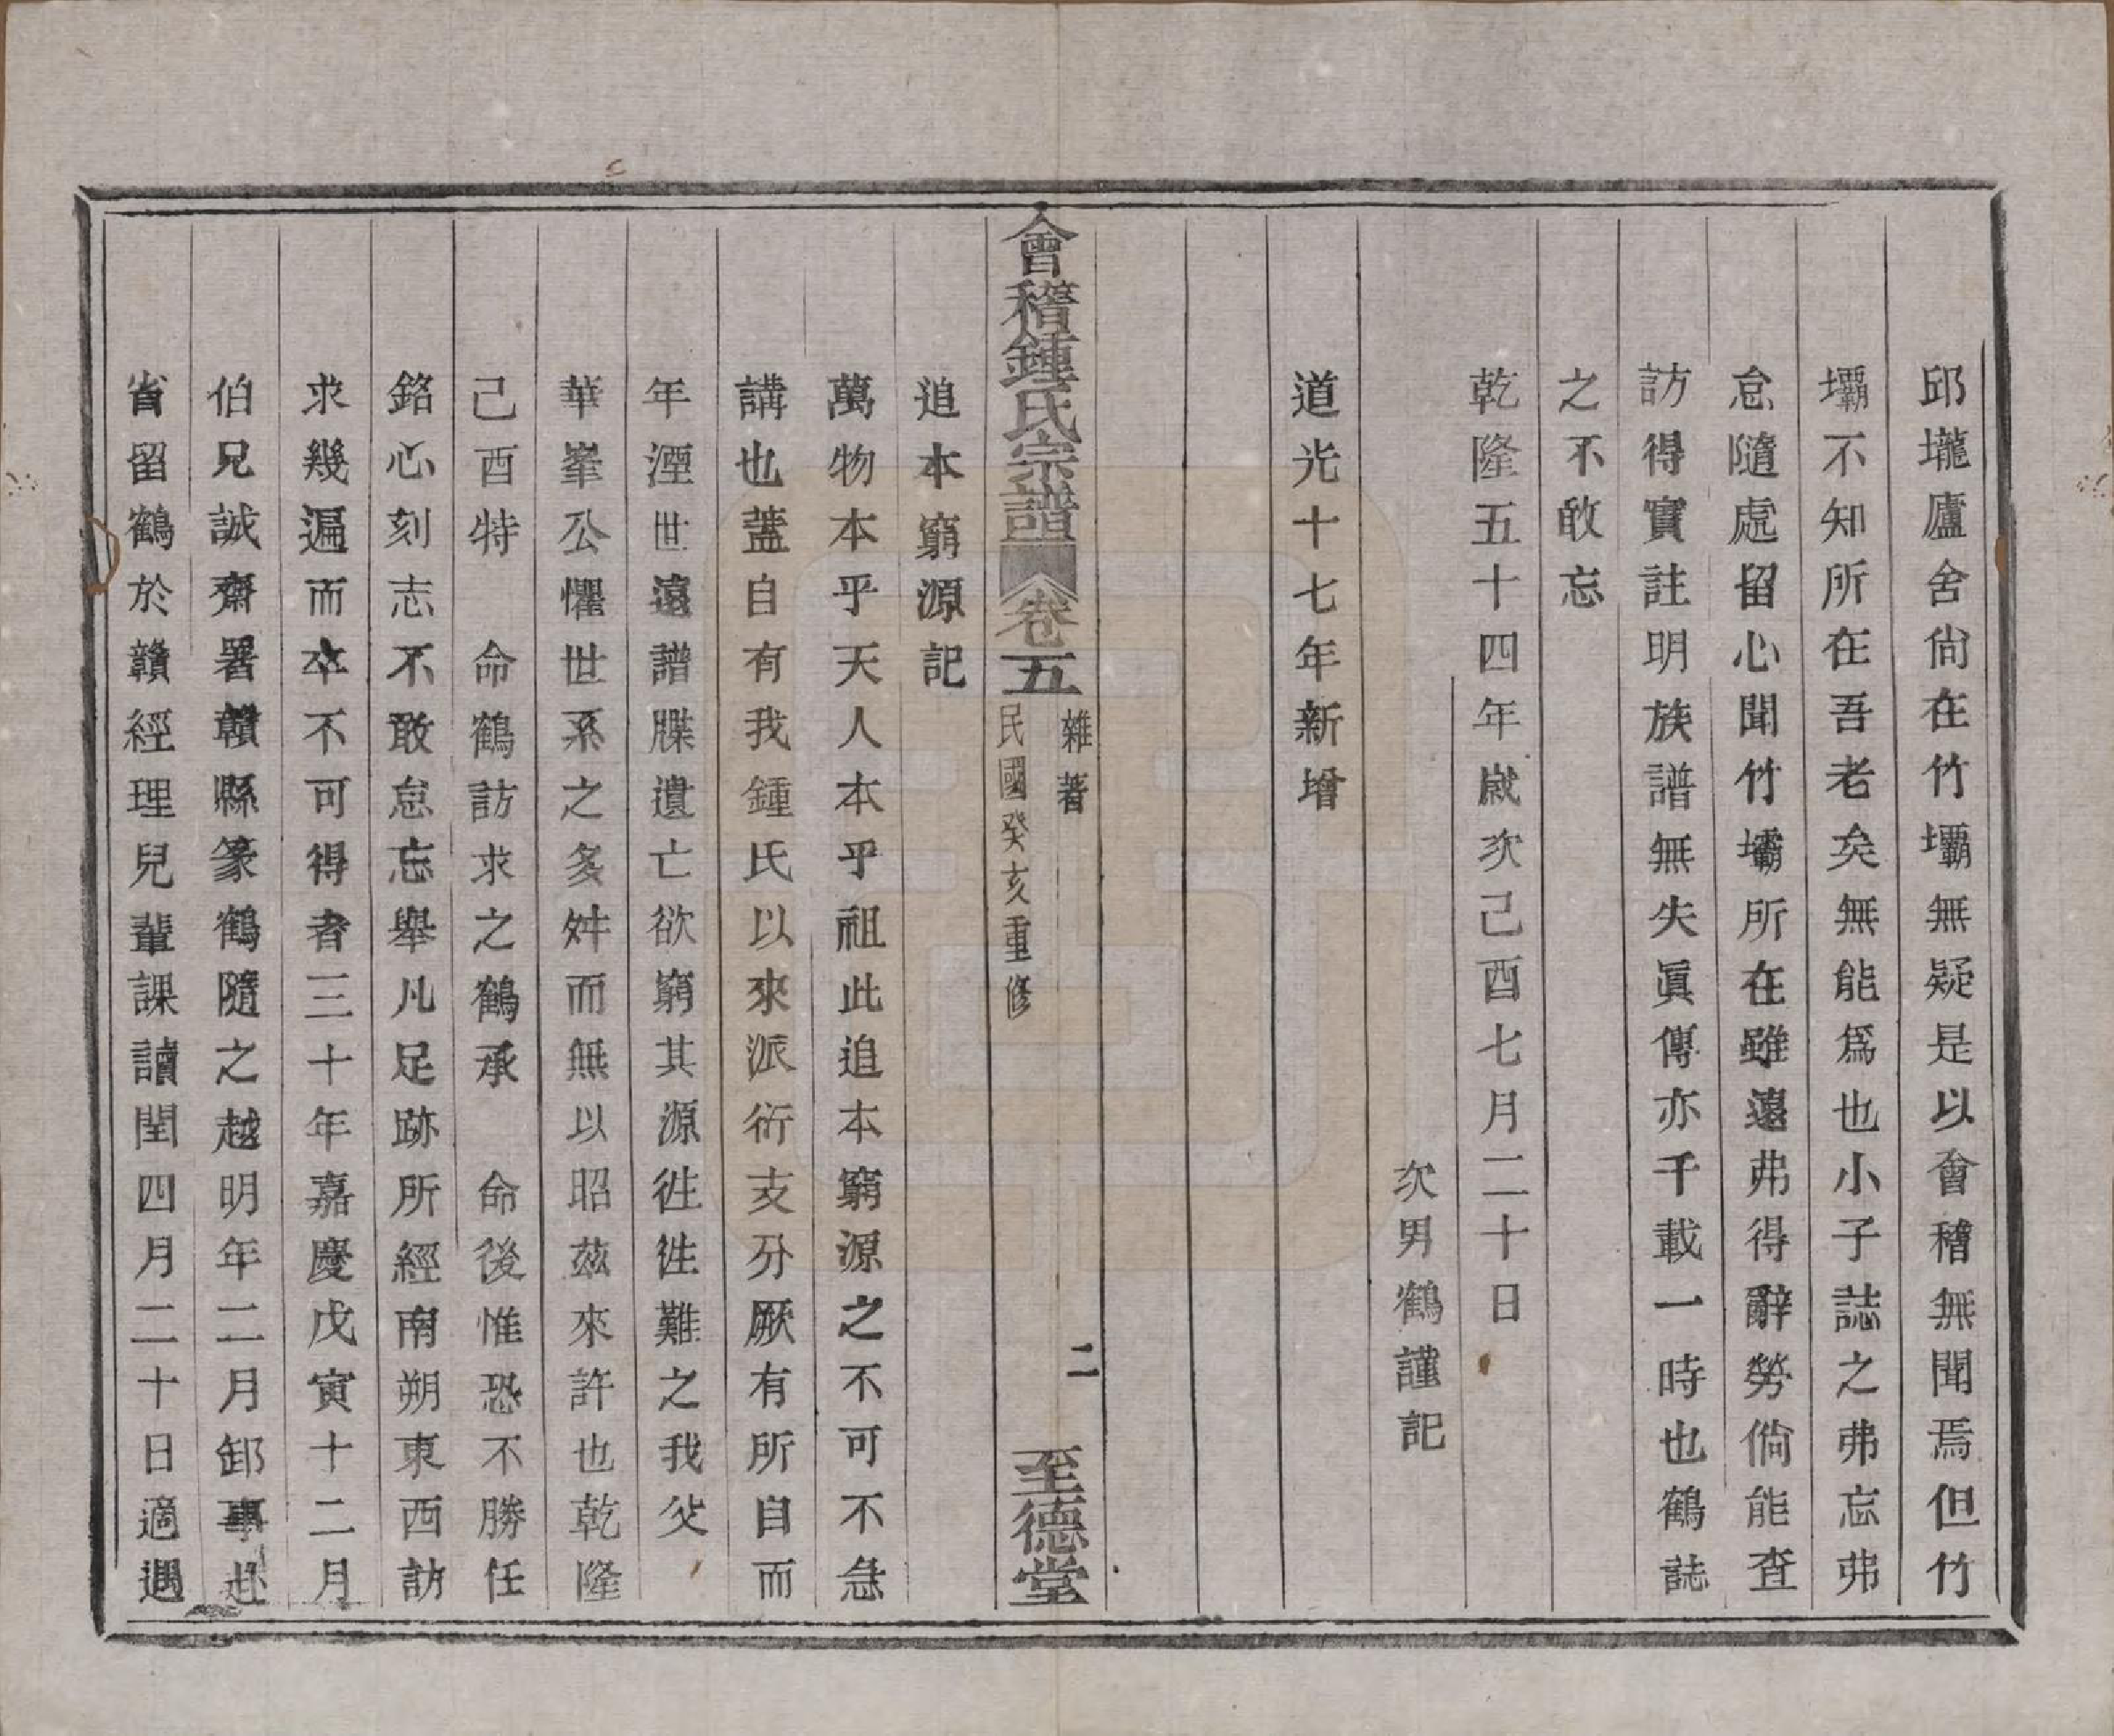 邱壠廬舍尙在竹壩無疑是以會稽無聞焉但竹
壩不知所在吾老矣無能爲也小子誌之弗忘弗
怠隨處留心聞竹壩所在雖遠弗得辭勞倘能査
訪得實註明族譜無失眞傳亦千載一時也鶴誌
之不敢忘
乾隆五十四年歲次己酉七月二十日
次男鶴謹記
道光十七年新增
會稽鍾氏宗譜
卷五
雜著
民國癸亥重修
二
至德堂
追本窮源記
萬物本乎天人本乎祖此追本窮源之不可不急
講也蓋自有我鍾氏以來派衍支分厥有所自而
年湮世遠譜牒遺亡欲窮其源徃徃難之我父
華峯公懼世系之多舛而無以昭茲來許也乾隆
己酉特　命鶴訪求之鶴承　命後惟恐不勝任
銘心刻志不敢怠忘舉凡足跡所經南朔東西訪
求幾遍而卒不可得者三十年嘉慶戊寅十二月
伯兄誠齋署贛縣篆鶴隨之越明年二月卸事赴
省留鶴於贛經理兒輩課讀閏四月二十日適遇